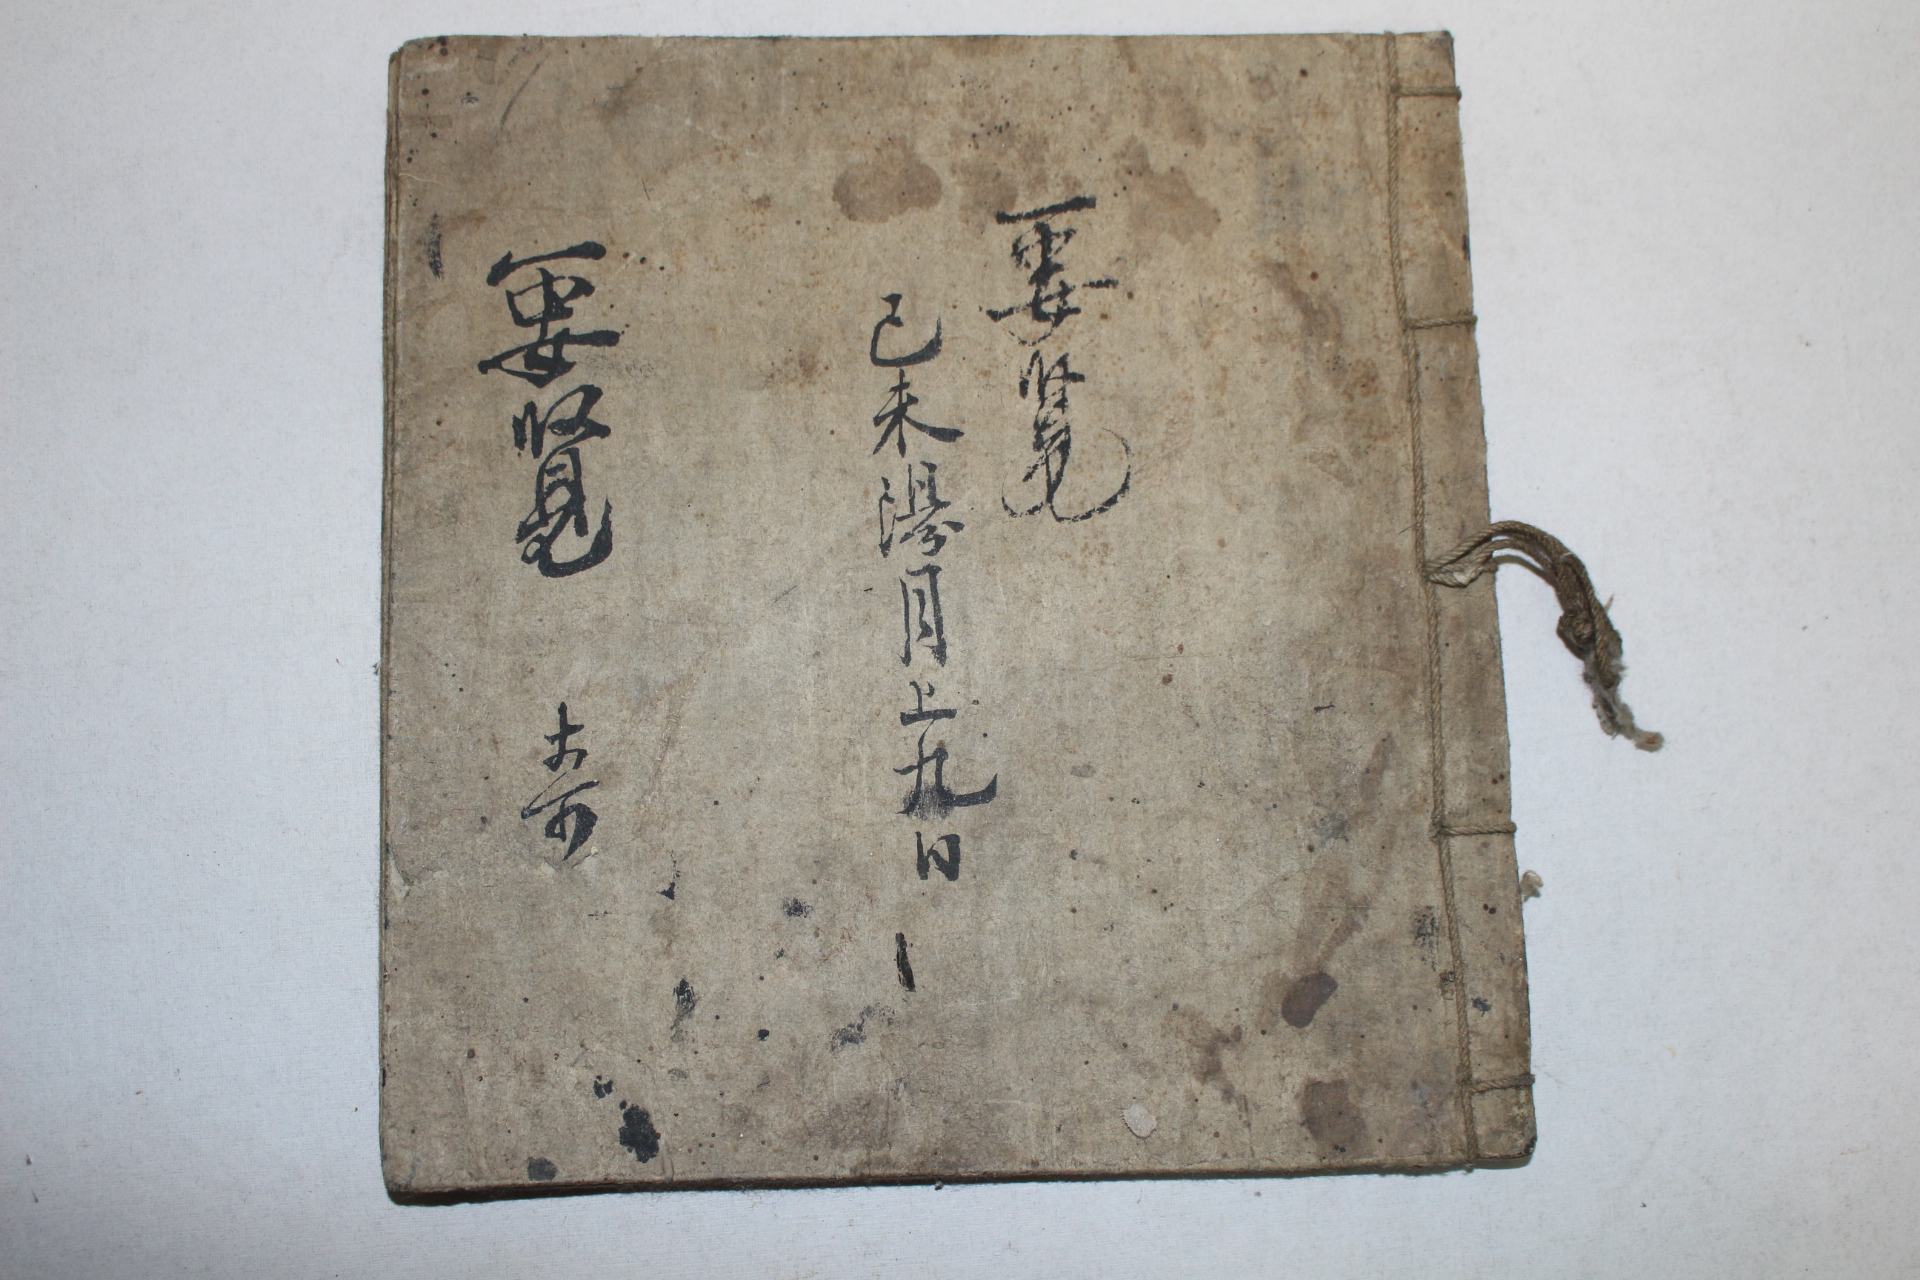 要覽
己未陽月上九日
要覽